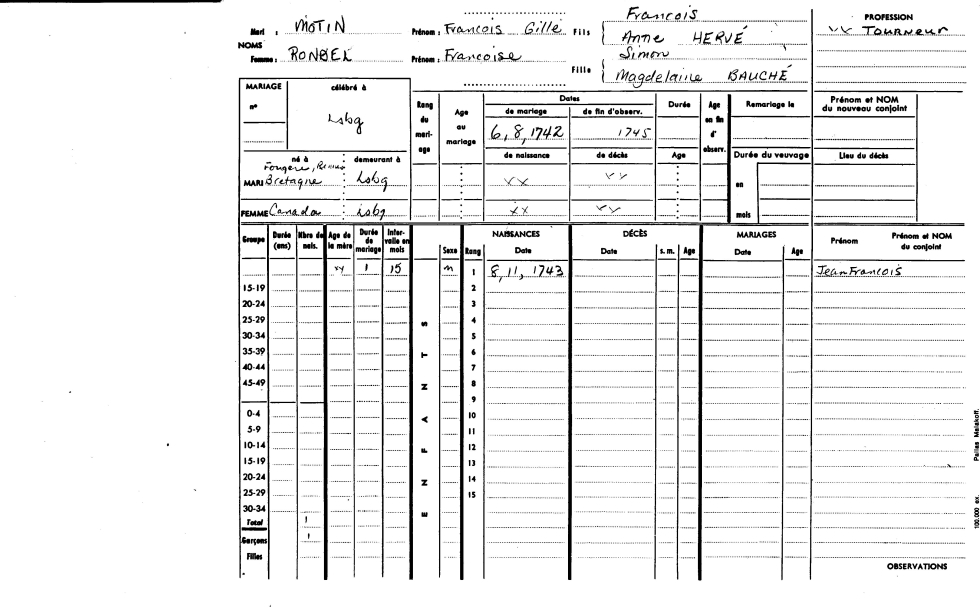 François
PROFESSION
Mari : MOTIN Prénom : François Gille Fils { Anne HERVÉ xx Tourneur
NOMS
Simon
Femme : RONDEL Prénom : Françoise
Fille { Magdelaine BAUCHÉ
MARIAGE célébré à
n°
Lsbg
Rang du mari-age
Age au mariage
Dates
de mariage de fin d'observ.
6, 8, 1742 1745
de naissance de décès
Durée
Age
Age en fin d' observ.
Remariage le
Durée du veuvage
en
mois
Prénom et NOM du nouveau conjoint
Lieu du décès
né à demeurant à
Fougere, Rennes
MARI Bretagne Lsbg xx xx
FEMME Canada Lsbg xx xx
NAISSANCES DÉCÈS MARIAGES
Groupe Durée (ans) Nbre de nais. Age de la mère Durée de mariage Inter-valle en mois Sexe Rang Date Date s. m. Age Date Age Prénom Prénom et NOM du conjoint
xx 1 15 m 1 8, 11, 1743 Jean Francois
15-19 2
20-24 3
25-29 4
30-34 5
35-39 6
40-44 7
45-49 8
9
0-4 10
5-9 11
10-14 12
15-19 13
20-24 14
25-29 15
30-34
Total 1
Garçons 1
Filles
ENFANTS
OBSERVATIONS
100.000 ex. Pallas Malakoff.